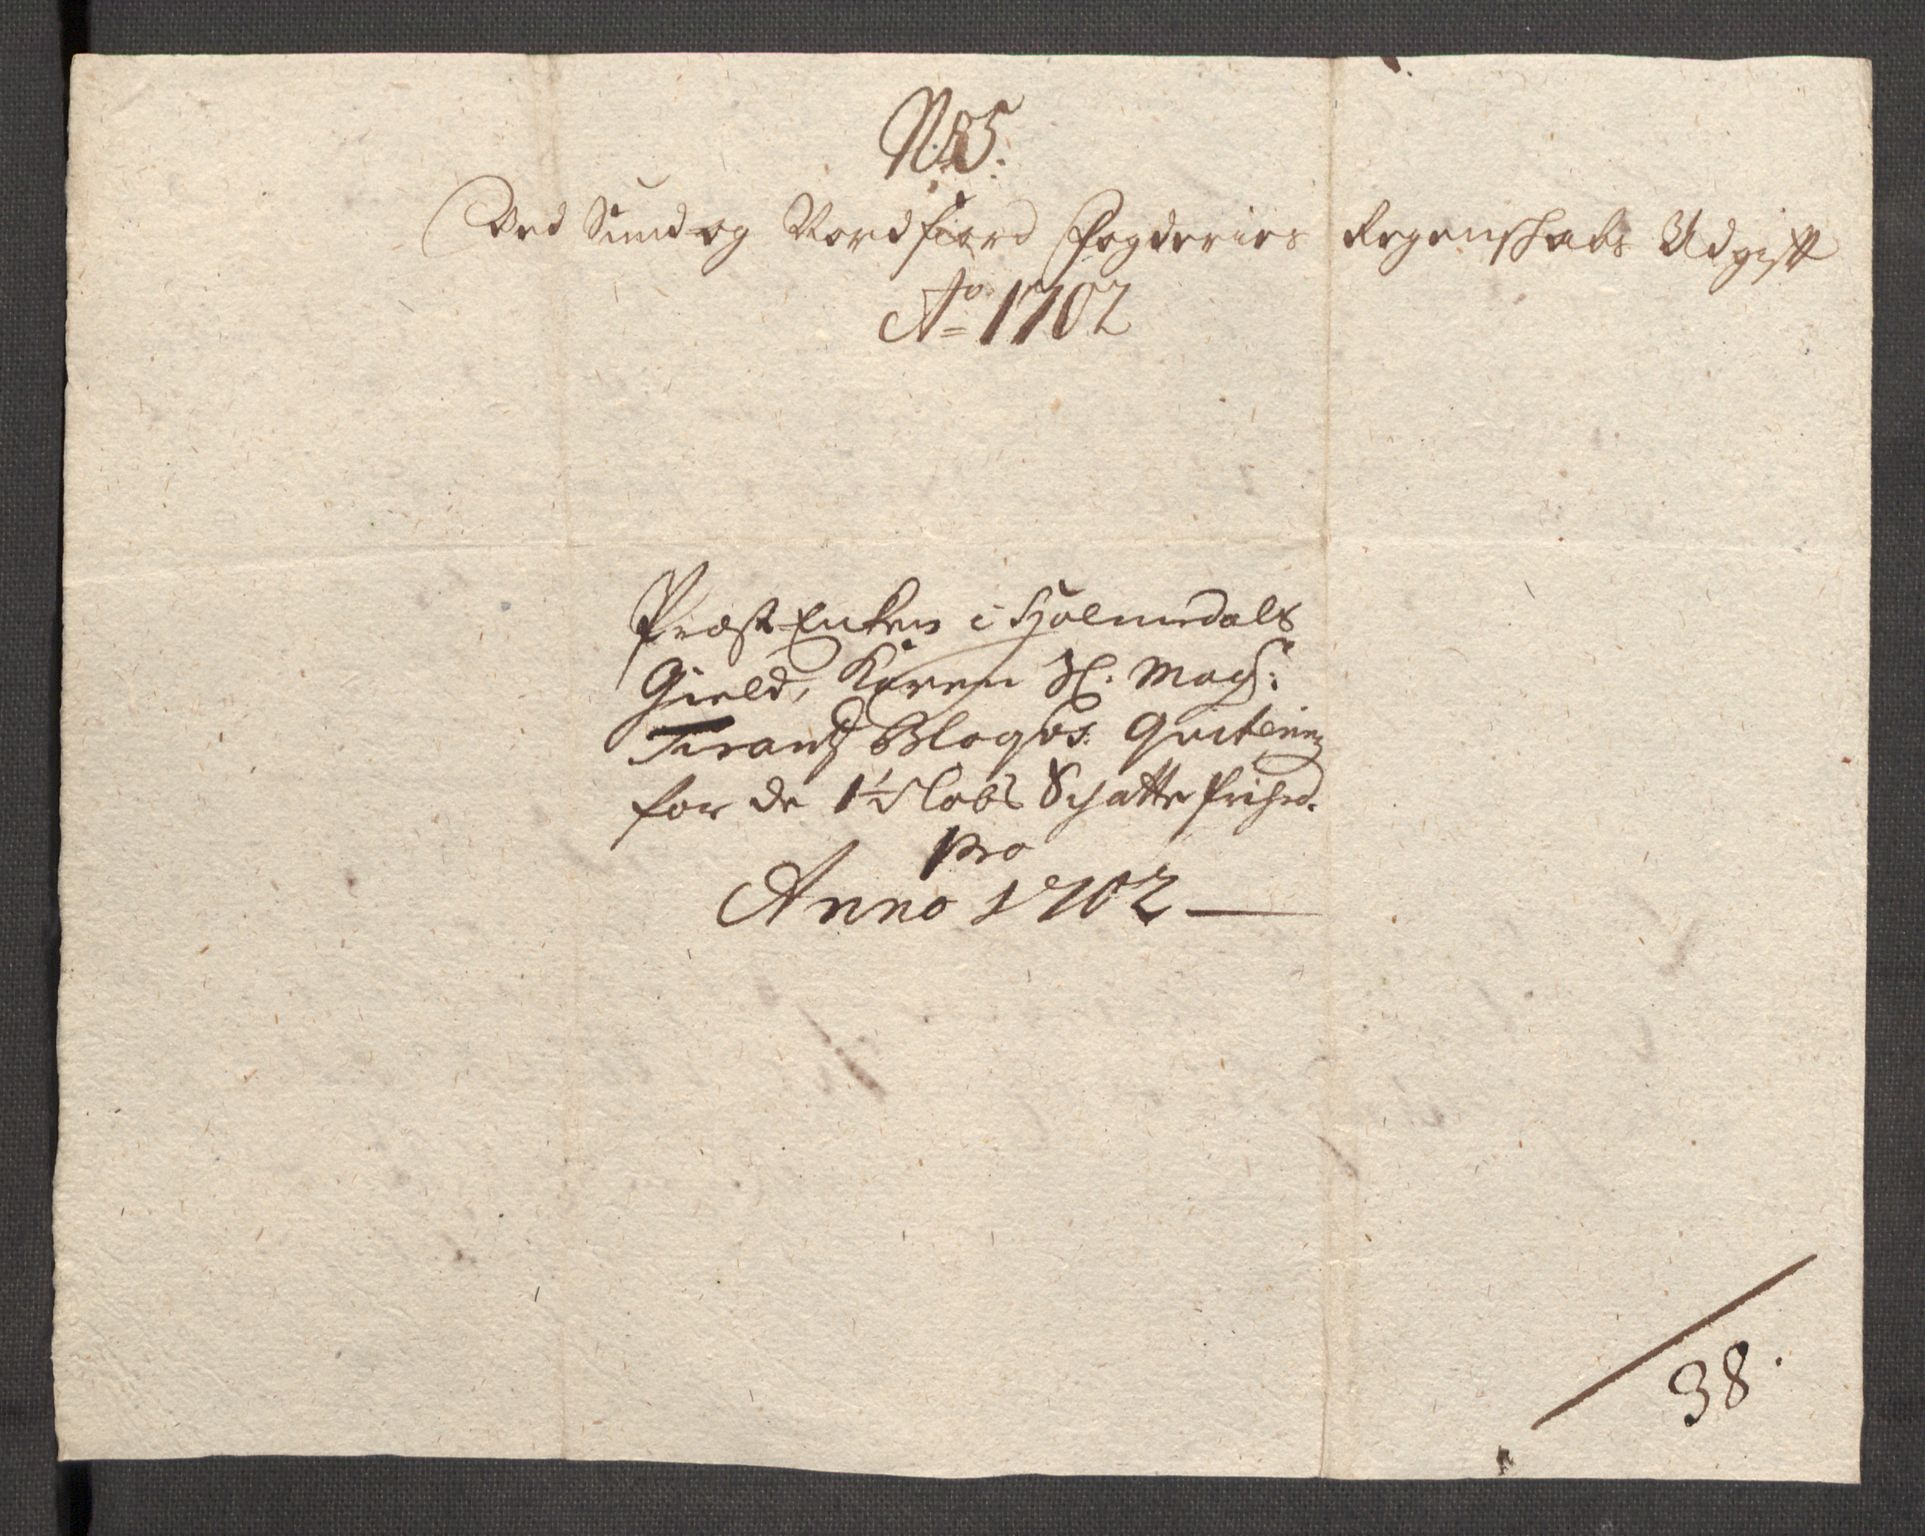 N: 25:
Ved Sund og Nordfiord Fogderies Regenskabs Udgift
Ao 1702
Præst Enken i Holmedals
Gield, Karen Sl. Magr:
Frantz Blogs. Qvitering
for de 1½ Løbs Schatte frihed.
pro
Anno 1702
38.